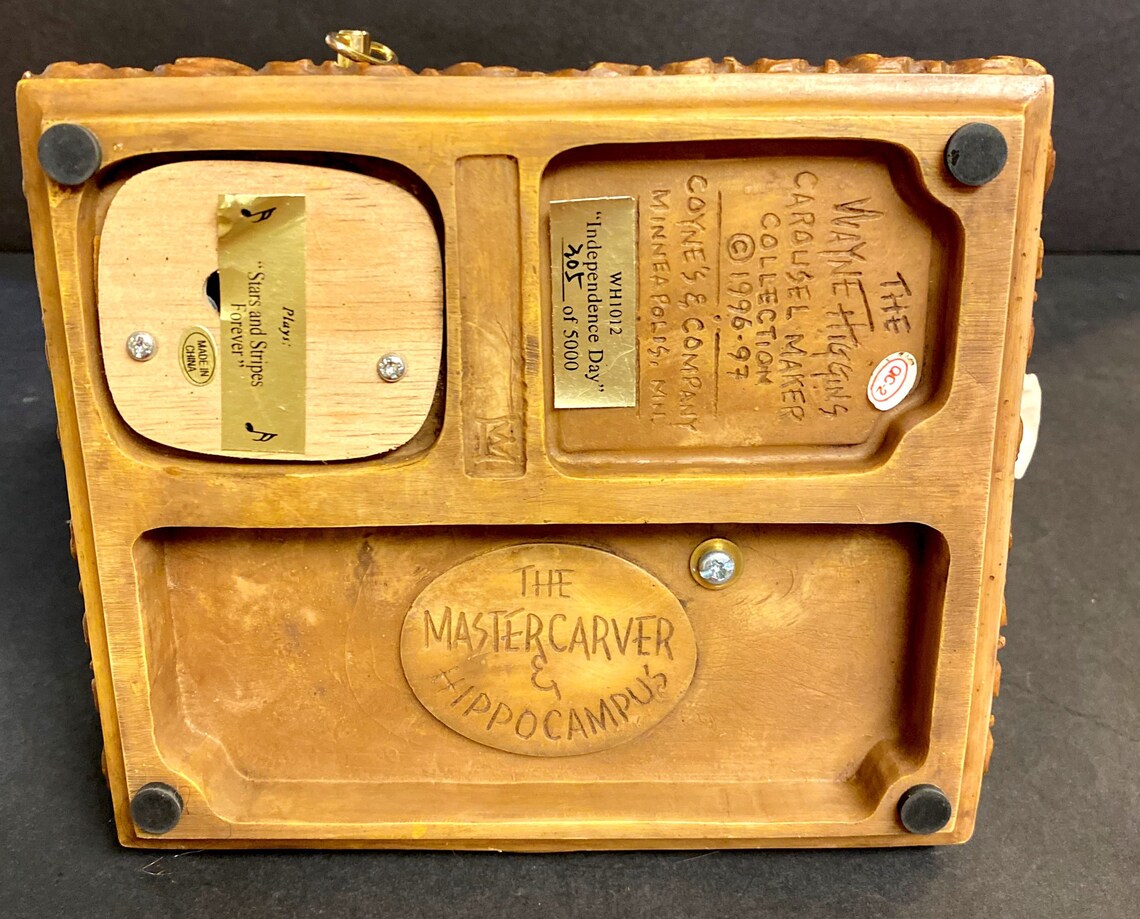 THE
WAYNE HIGGINS
CAROUSEL MAKER
COLLECTION
© 1996-97
COYNE'S & COMPANY
MINNEAPOLIS, MN.
QC2
WH1012
"Independence Day"
305 of 5000
Plays:
"Stars and Stripes
Forever"
MADE IN
CHINA
THE
MASTERCARVER
&
HIPPOCAMPUS